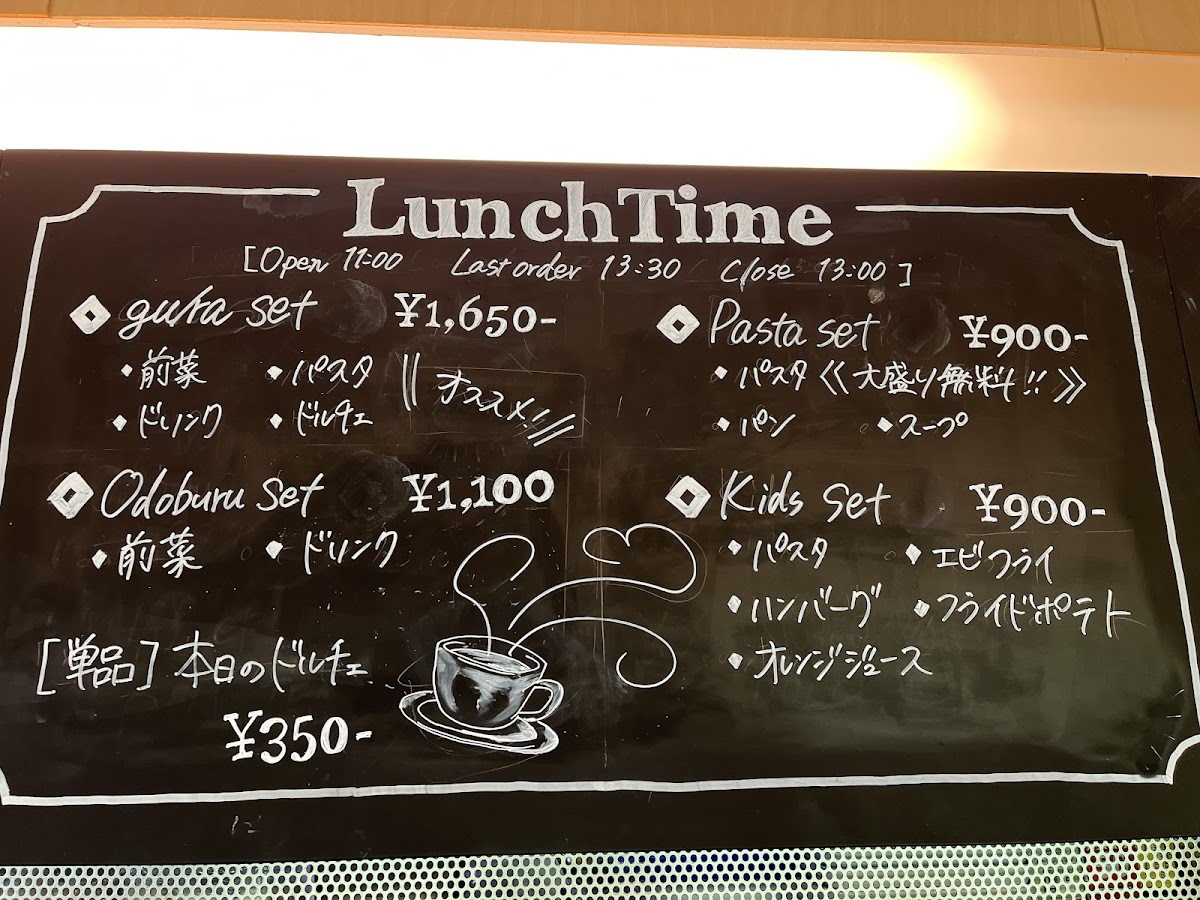 LunchTime
[Open 11:00 Last order 13:30 Close 13:00]
guta set ¥1,650-
・前菜 ・パスタ
・ドリンク ・ドルチェ
オススメ!!
Odoburu set ¥1,100
・前菜 ・ドリンク
[単品] 本日のドルチェ
¥350-
Pasta set ¥900-
・パスタ《大盛り無料!!》
・パン ・スープ
Kids set ¥900-
・パスタ ・エビフライ
・ハンバーグ ・フライドポテト
・オレンジジュース